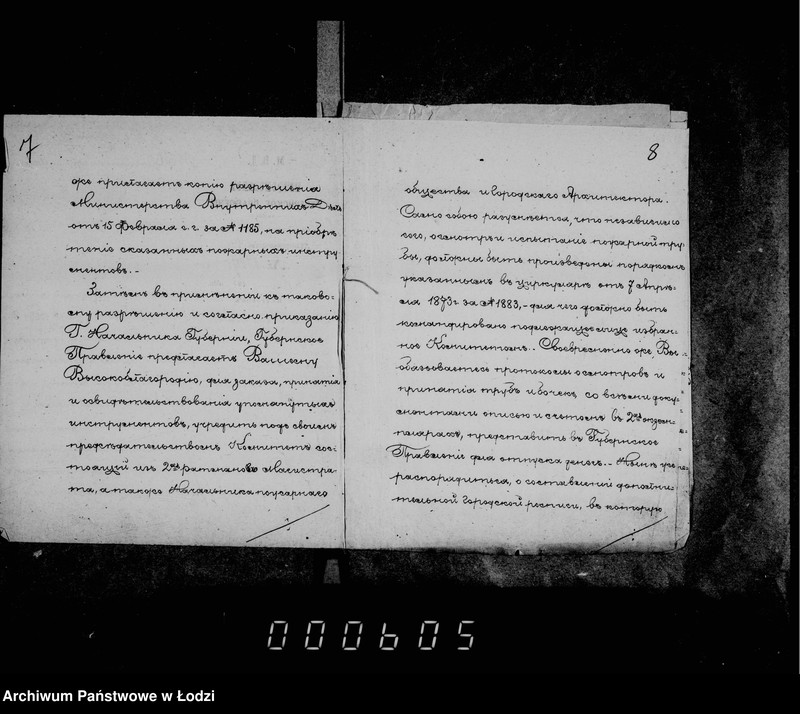 7
же прилагаетъ копію разрѣшенія
Министерства Внутреннихъ Дѣлъ
отъ 15 Февраля с. г. за № 1185, на пріобрѣ
теніе сказанныхъ пожарныхъ инстру
ментовъ.-
Затѣмъ въ примѣненіи къ таково-
му разрѣшенію и согласно приказанію
Г. Начальника Губерніи, Губернское
Правленіе предлагаетъ Вашему
Высокоблагородію, для заказа, принятія
и освидѣтельствованія упомянутыхъ
инструментовъ, учредить подъ своимъ
предсѣдательствомъ Комитетъ сос-
тоящій изъ 2хъ ратмановъ Магистра-
та, а также Начальника пожарнаго
8
общества и Городскаго Архитектора.
Само собою разумѣется, что независимо
сего, осмотръ и испытаніе пожарной тру
бы, должны быть произведены порядкомъ
указаннымъ въ циркулярѣ отъ 7 Апрѣ-
ля 1873 г за № 1883,- для чего должно быть
командировано подлежащее лице избран-
ное Комитетомъ.. Своевременно же Вы
обязываетесь протоколы осмотровъ и
принятія трубъ и бочекъ со всѣми доку-
ментами описью и счетомъ въ 2хъ экзем-
плярахъ, представить въ Губернское
Правленіе для отпуска денегъ..
распорядиться, о составленіи дополни-
тельной Городской росписи, въ которую
000605
Archiwum Państwowe w Łodzi